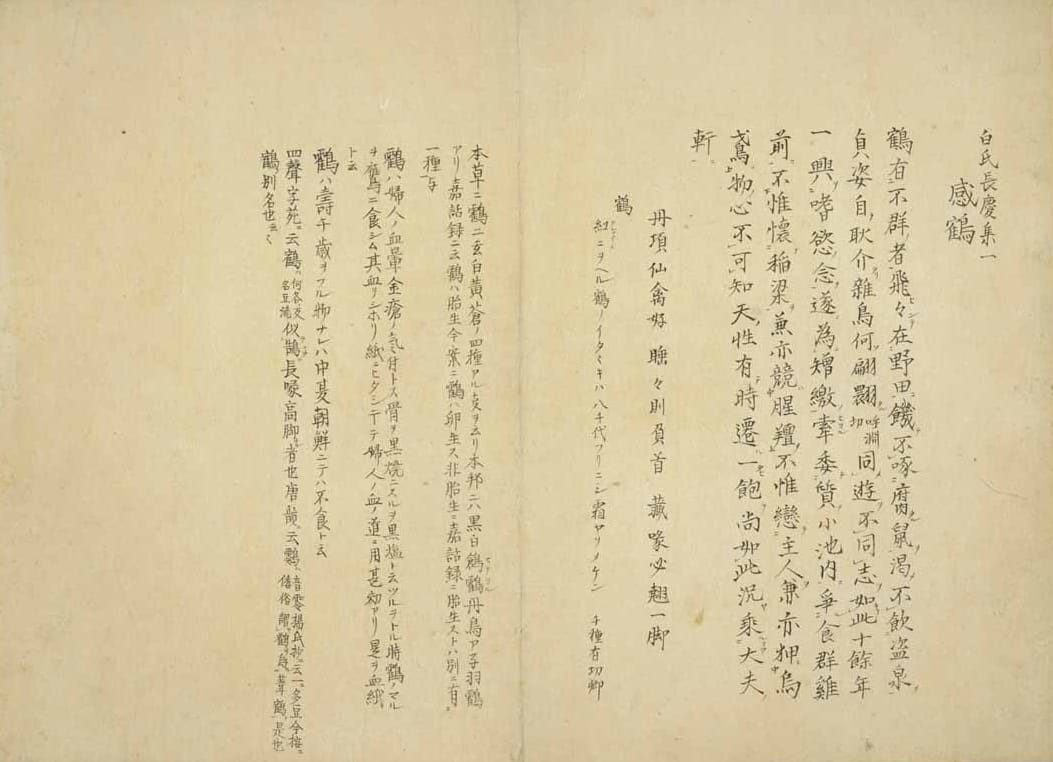 白氏長慶集一
感鶴
鶴有不群者飛々在野田饑不啄腐鼠渇不飲盗泉
貞姿自耿介雜鳥何翩翾呼淵切同遊不同志如此十餘年
一興嗜慾念遂為矰繳牽委質小池内爭食群雞
前不惟懷稲梁兼亦競腥羶不惟戀主人兼亦狎烏
鳶物心不可知天性有時遷一飽尚如此況乘大夫
軒
丹項仙禽好睡々則負首藏喙必翹一脚
鶴
紅ニヲヘル鶴ノイタヽキハ八千代フリニシ霜ヤリメケン 千種有功卿
本草ニ鶴ニ玄白黄蒼ノ四種アル支ヲ云リ本邦ニハ黒白鶴丹鳥アネ羽鶴
アリ嘉話録ニ云鶴ハ胎生今案ニ鶴ハ卵生ス非胎生嘉話録ニ胎生ストハ別ニ有
一種
鶴ハ婦人ノ血暈金瘡ノ骨ヲ黒焼ニスルヲ黒塩ト云ツルヲトル時鶴ノマル
ヲ鷹ニ食シム其血ヲシボリ紙ニヒタシテ婦人ノ血ノ道ニ用甚効アリ是ヲ血紙
ト云
鶴ハ壽千歳ヲフル物ナレハ中夏朝鮮ニテハ不食ト云
四聲字苑云鶴何各反名豆流似鵠長喙高脚者也唐韻云鸖音零楊氏抄云多豆今按倭俗謂鶴為葦鶴是也
鶴別名也云々